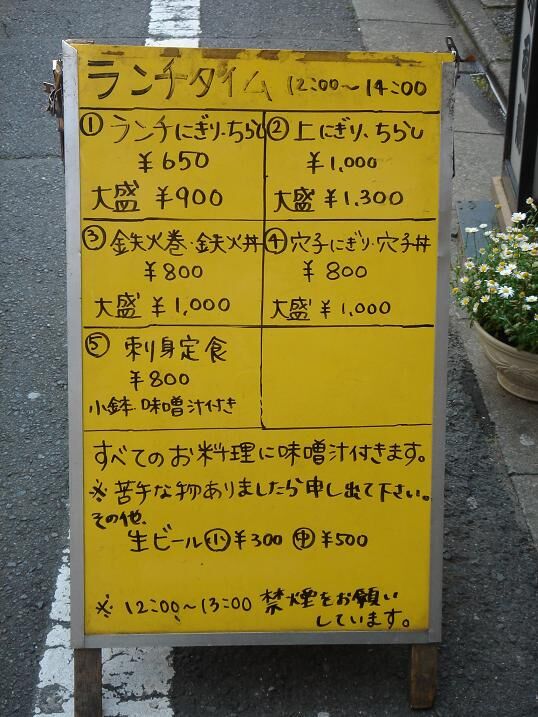 ランチタイム 12:00～14:00
① ランチにぎり・ちらし
￥650
大盛 ￥900
② 上にぎり、ちらし
￥1,000
大盛 ￥1,300
③ 鉄火巻・鉄火丼
￥800
大盛 ￥1,000
④ 穴子にぎり・穴子丼
￥800
大盛 ￥1,000
⑤ 刺身定食
￥800
小鉢 味噌汁付き
すべてのお料理に味噌汁付きます。
※苦手な物ありましたら申し出て下さい。
その他、
生ビール 小 ￥300 中 ￥500
※ 12:00～13:00 禁煙をお願い
しています。